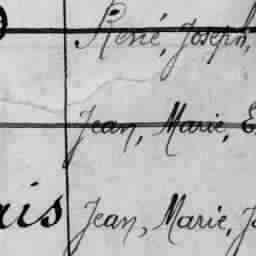 René, Joseph,
Jean, Marie, E
ais Jean, Marie, J